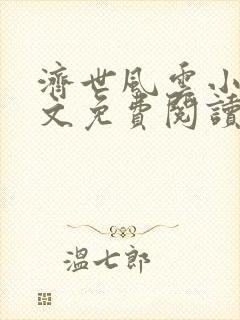 濟世風雲小
文免費閱讀
溫七郎